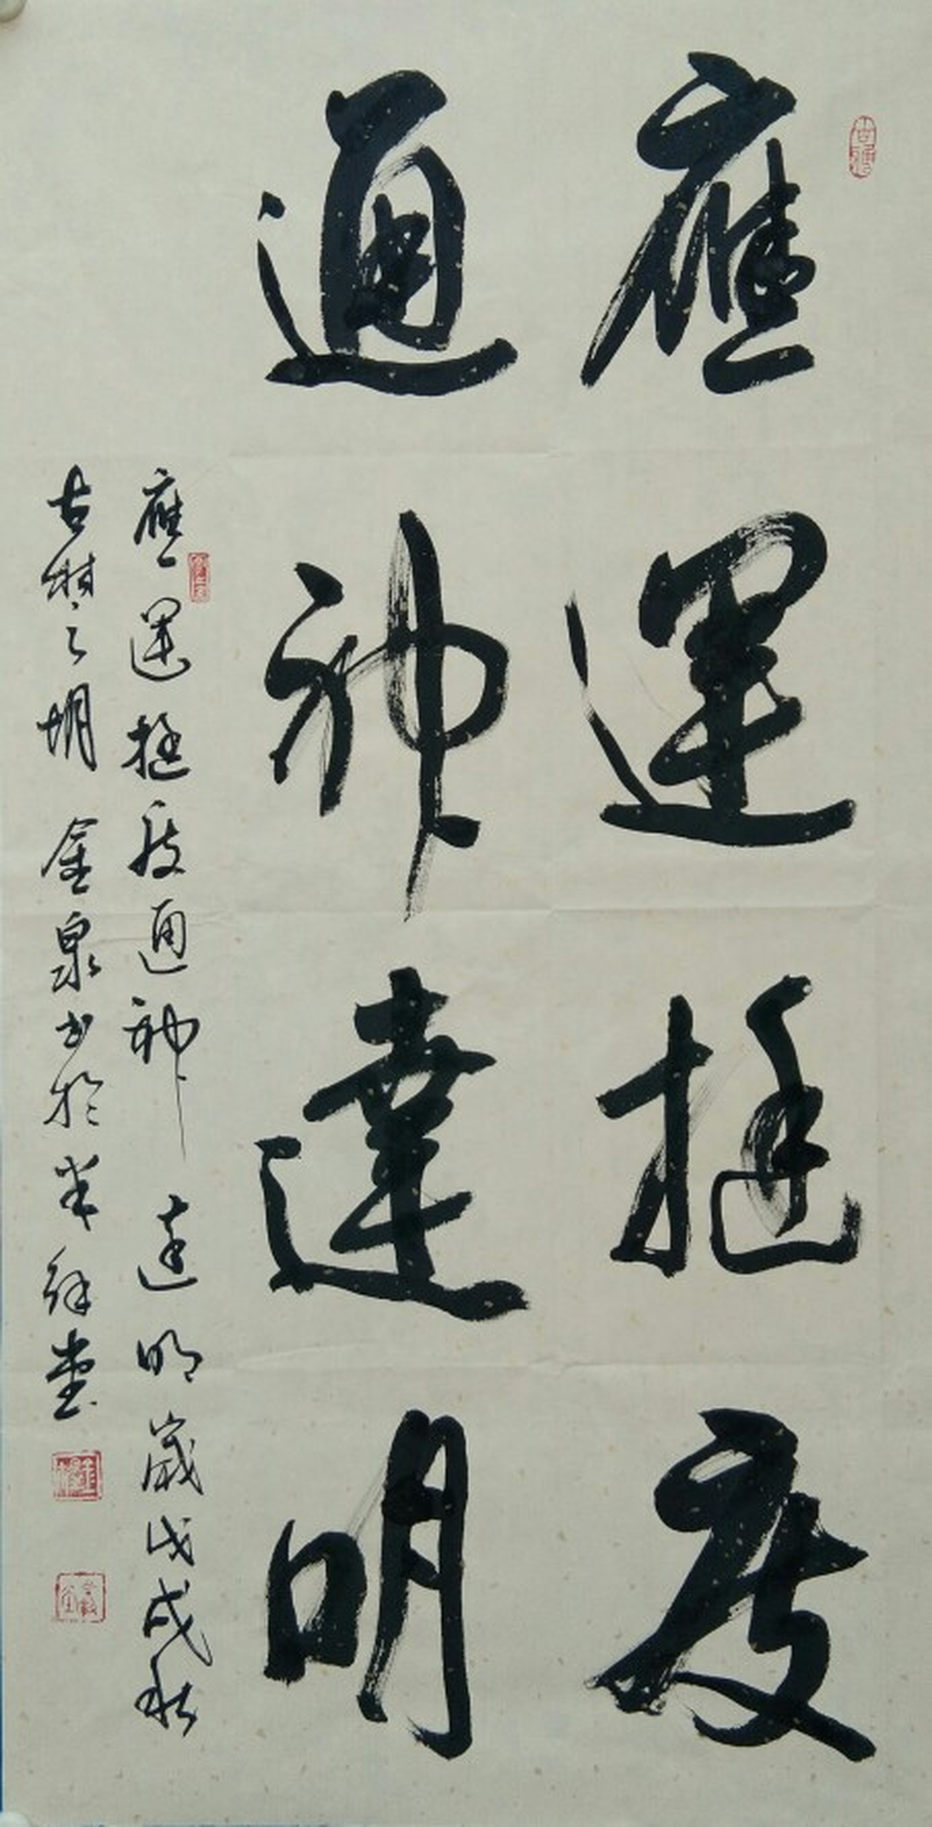 應運挺度
通神達明
應運挺度通神達明歲戊戌秋
古楚之明金泉書於半緣堂